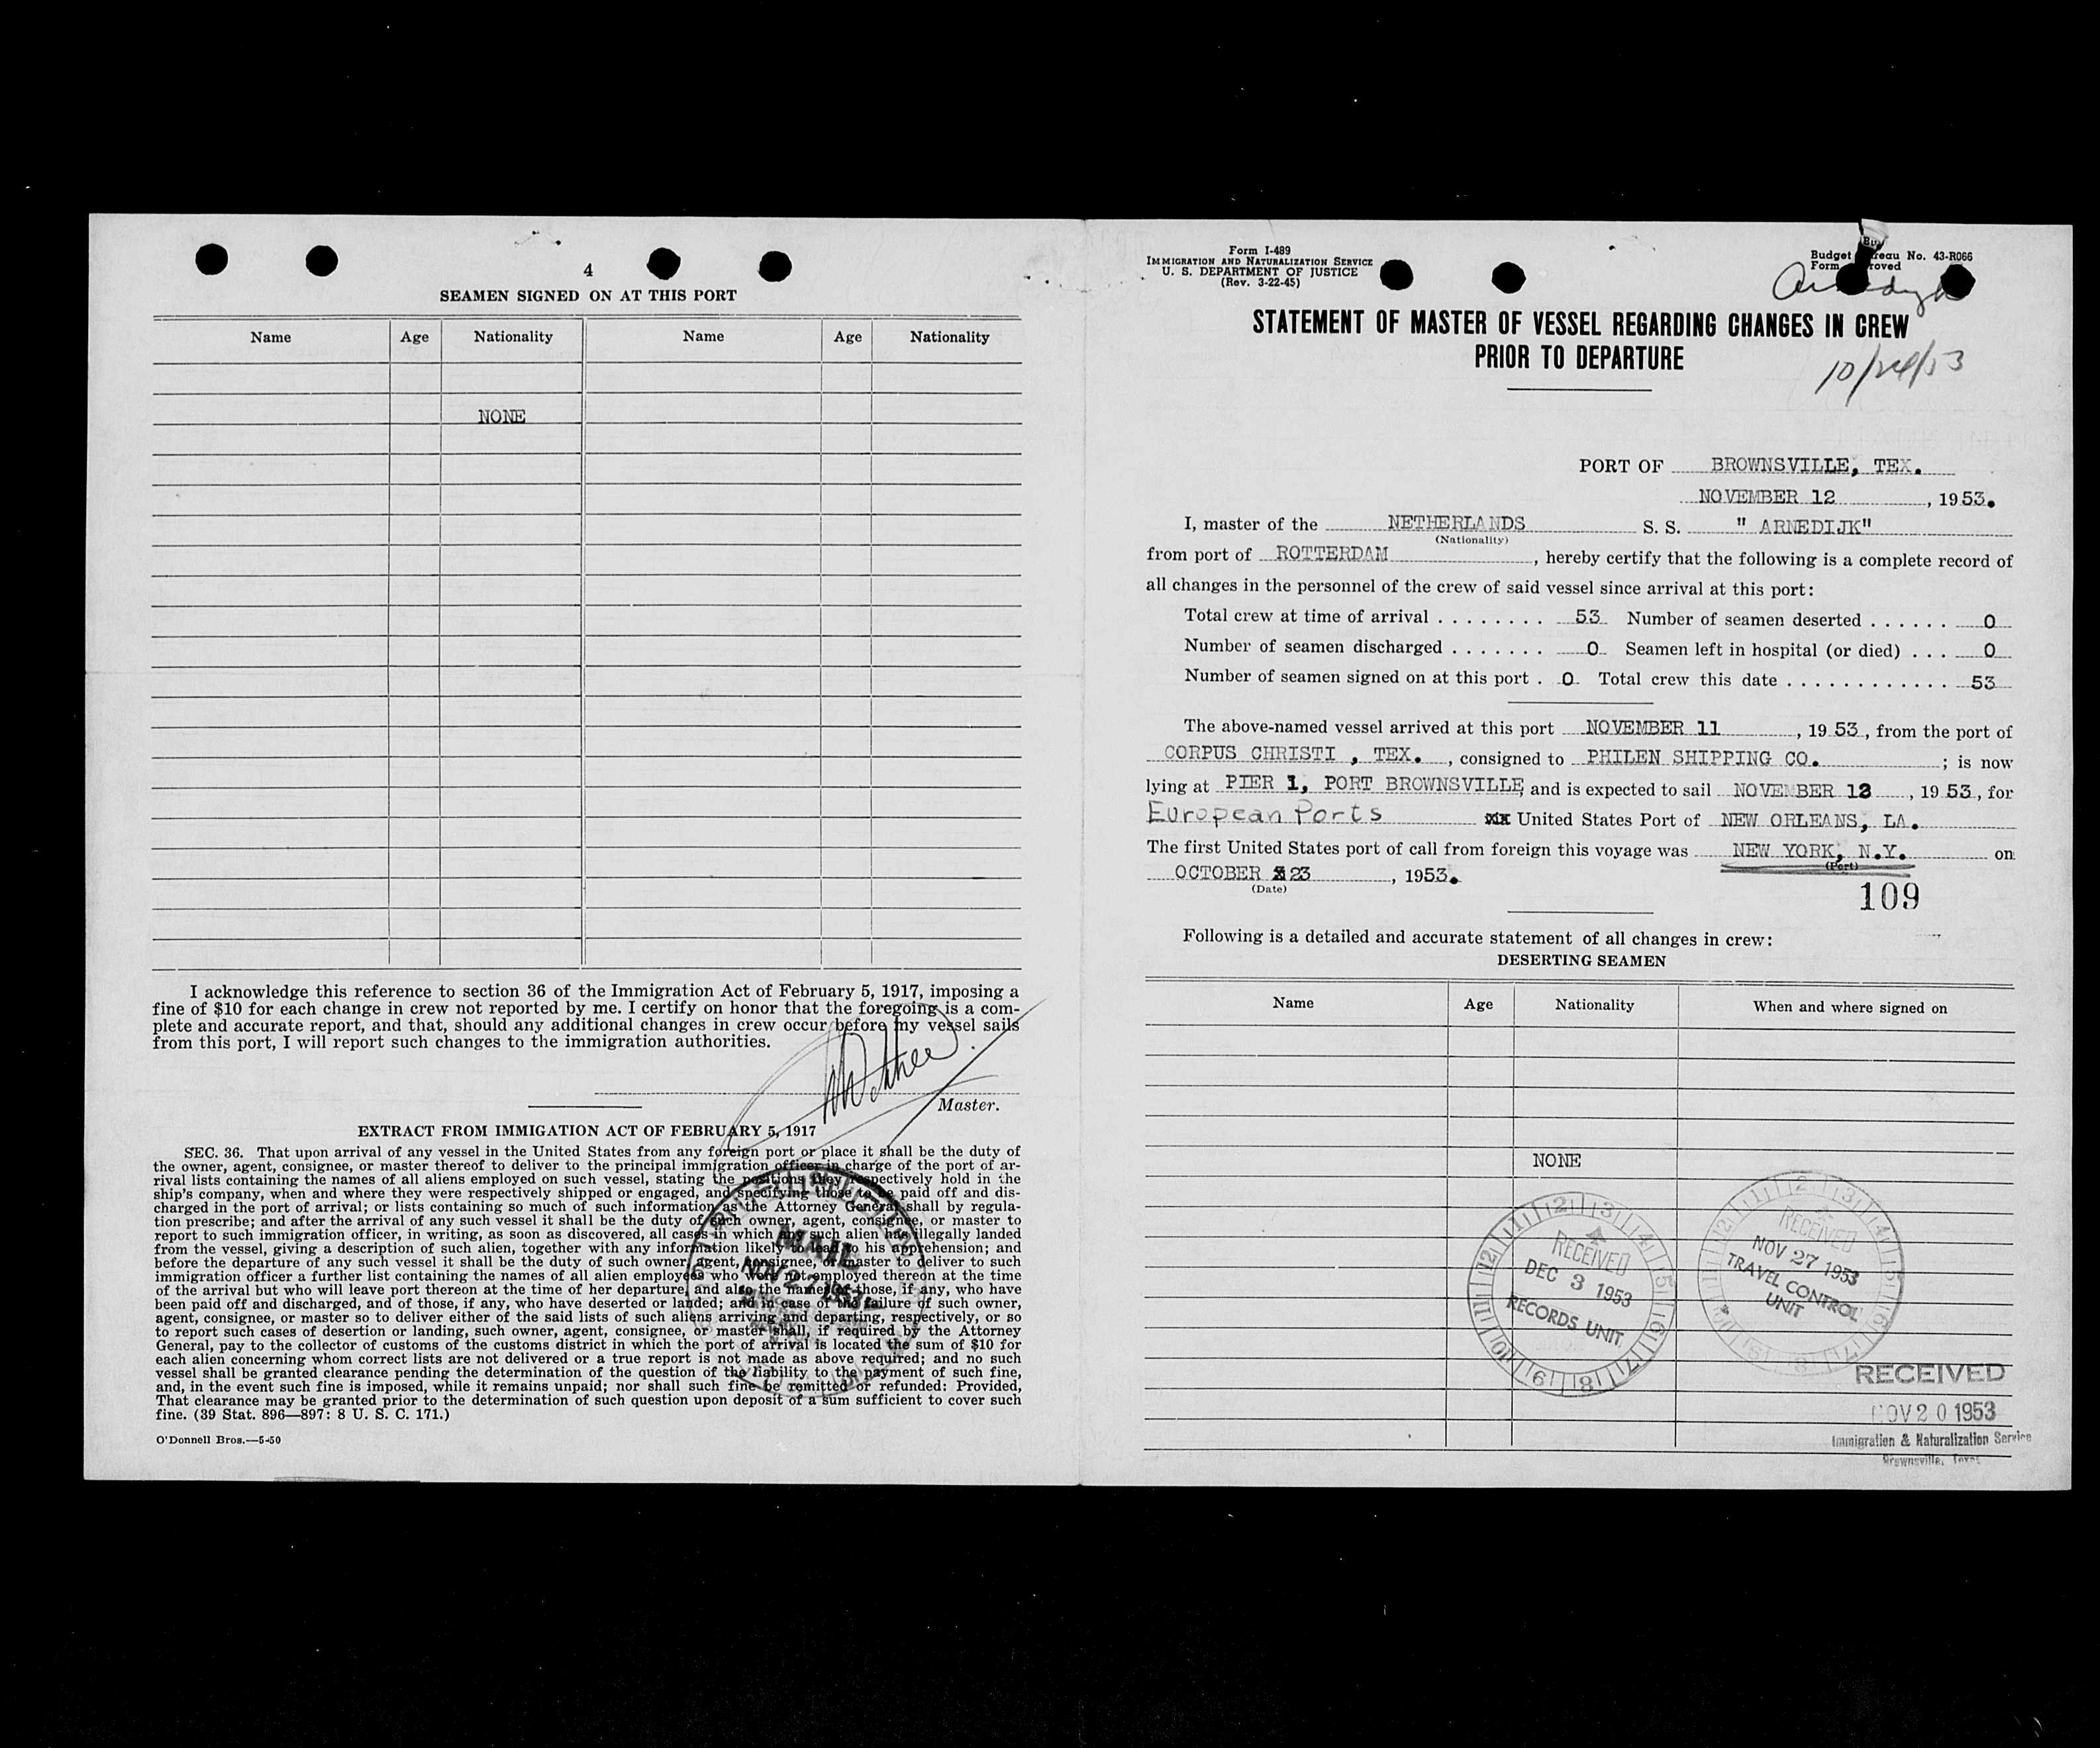 4
SEAMEN SIGNED ON AT THIS PORT
Name Age Nationality Name Age Nationality
NONE
I acknowledge this reference to section 36 of the Immigration Act of February 5, 1917, imposing a
fine of $10 for each change in crew not reported by me. I certify on honor that the foregoing is a com-
plete and accurate report, and that, should any additional changes in crew occur before my vessel sails
from this port, I will report such changes to the immigration authorities.
Master.
EXTRACT FROM IMMIGATION ACT OF FEBRUARY 5, 1917
SEC. 36. That upon arrival of any vessel in the United States from any foreign port or place it shall be the duty of
the owner, agent, consignee, or master thereof to deliver to the principal immigration officer in charge of the port of ar-
rival lists containing the names of all aliens employed on such vessel, stating the positions they respectively hold in the
ship's company, when and where they were respectively shipped or engaged, and specifying those to be paid off and dis-
charged in the port of arrival; or lists containing so much of such information as the Attorney General shall by regula-
tion prescribe; and after the arrival of any such vessel it shall be the duty of such owner, agent, consignee, or master to
report to such immigration officer, in writing, as soon as discovered, all cases in which any such alien has illegally landed
from the vessel, giving a description of such alien, together with any information likely to lead to his apprehension; and
before the departure of any such vessel it shall be the duty of such owner, agent, consignee, or master to deliver to such
immigration officer a further list containing the names of all alien employees who were not employed thereon at the time
of the arrival but who will leave port thereon at the time of her departure, and also the names of those, if any, who have
been paid off and discharged, and of those, if any, who have deserted or landed; and in case of the failure of such owner,
agent, consignee, or master so to deliver either of the said lists of such aliens arriving and departing, respectively, or so
to report such cases of desertion or landing, such owner, agent, consignee, or master shall, if required by the Attorney
General, pay to the collector of customs of the customs district in which the port of arrival is located the sum of $10 for
each alien concerning whom correct lists are not delivered or a true report is not made as above required; and no such
vessel shall be granted clearance pending the determination of the question of the liability to the payment of such fine,
and, in the event such fine is imposed, while it remains unpaid; nor shall such fine be remitted or refunded: Provided,
That clearance may be granted prior to the determination of such question upon deposit of a sum sufficient to cover such
fine. (39 Stat. 896—897: 8 U. S. C. 171.)
O'Donnell Bros.—5-50
MAIL
NOV 27 1953
Form I-489
IMMIGRATION AND NATURALIZATION SERVICE
U. S. DEPARTMENT OF JUSTICE
(Rev. 3-22-45)
Budget Bureau No. 43-R066
Form Approved
Arnedyk
STATEMENT OF MASTER OF VESSEL REGARDING CHANGES IN CREW
PRIOR TO DEPARTURE
10/24/53
PORT OF BROWNSVILLE, TEX.
NOVEMBER 12, 1953.
I, master of the NETHERLANDS S. S. " ARNEDIJK"
(Nationality)
from port of ROTTERDAM, hereby certify that the following is a complete record of
all changes in the personnel of the crew of said vessel since arrival at this port:
Total crew at time of arrival . . . . . . . . 53 Number of seamen deserted . . . . . . 0
Number of seamen discharged . . . . . . . 0 Seamen left in hospital (or died) . . . 0
Number of seamen signed on at this port . 0 Total crew this date . . . . . . . . . . . . 53
The above-named vessel arrived at this port NOVEMBER 11, 1953, from the port of
CORPUS CHRISTI , TEX., consigned to PHILEN SHIPPING CO. ; is now
lying at PIER 1, PORT BROWNSVILLE, and is expected to sail NOVEMBER 12, 1953, for
European Ports United States Port of NEW ORLEANS, LA.
The first United States port of call from foreign this voyage was NEW YORK, N.Y. on
(Port)
OCTOBER 23, 1953.
(Date)
109
Following is a detailed and accurate statement of all changes in crew:
DESERTING SEAMEN
Name Age Nationality When and where signed on
NONE
RECEIVED
DEC 3 1953
RECORDS UNIT
RECEIVED
NOV 27 1953
TRAVEL CONTROL
UNIT
RECEIVED
NOV 20 1953
Immigration & Naturalization Service
Brownsville, Texas